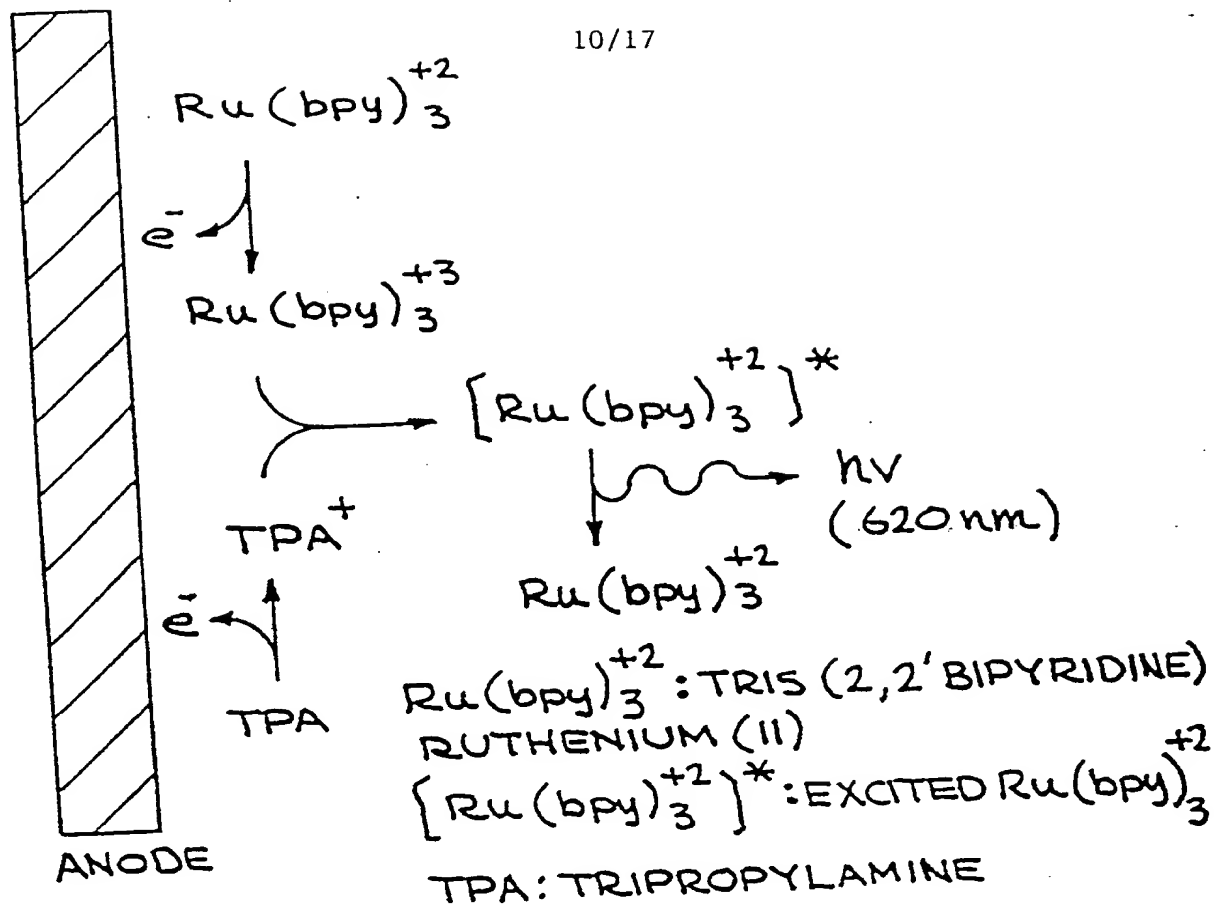 10/17
Ru (bpy)₃⁺²
e⁻
Ru (bpy)₃⁺³
[Ru (bpy)₃⁺²]*
hν
(620 nm)
TPA⁺
Ru (bpy)₃⁺²
e⁻
TPA
Ru (bpy)₃⁺² : TRIS (2,2' BIPYRIDINE)
RUTHENIUM (II)
[Ru (bpy)₃⁺²]* : EXCITED Ru (bpy)₃⁺²
ANODE
TPA : TRIPROPYLAMINE